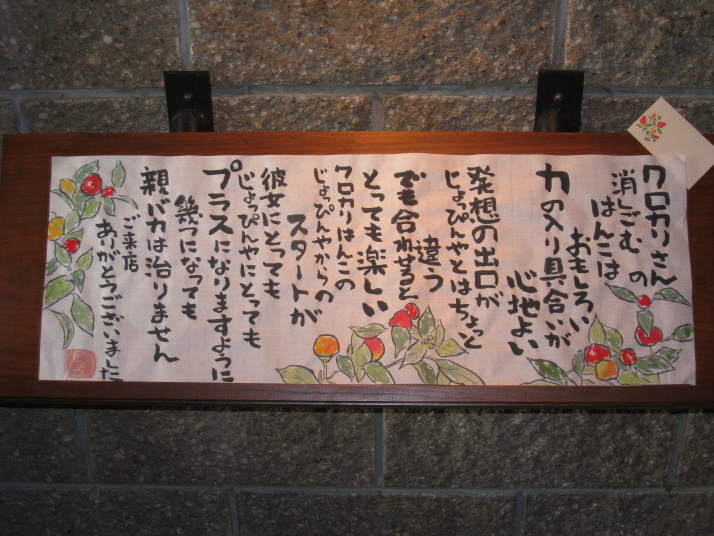 クロカリさん
消しごむの
はんこは
おもしろい
力の入り具合いが
心地よい
発想の出口が
じょっぴんやとはちょっと
違う
でも合わせると
とっても楽しい
クロカリはんこの
じょっぴんやからの
スタートが
彼女にとっても
じょっぴんやにとっても
プラスになりますように
幾つになっても
親バカは治りません
ご来店
ありがとうございました